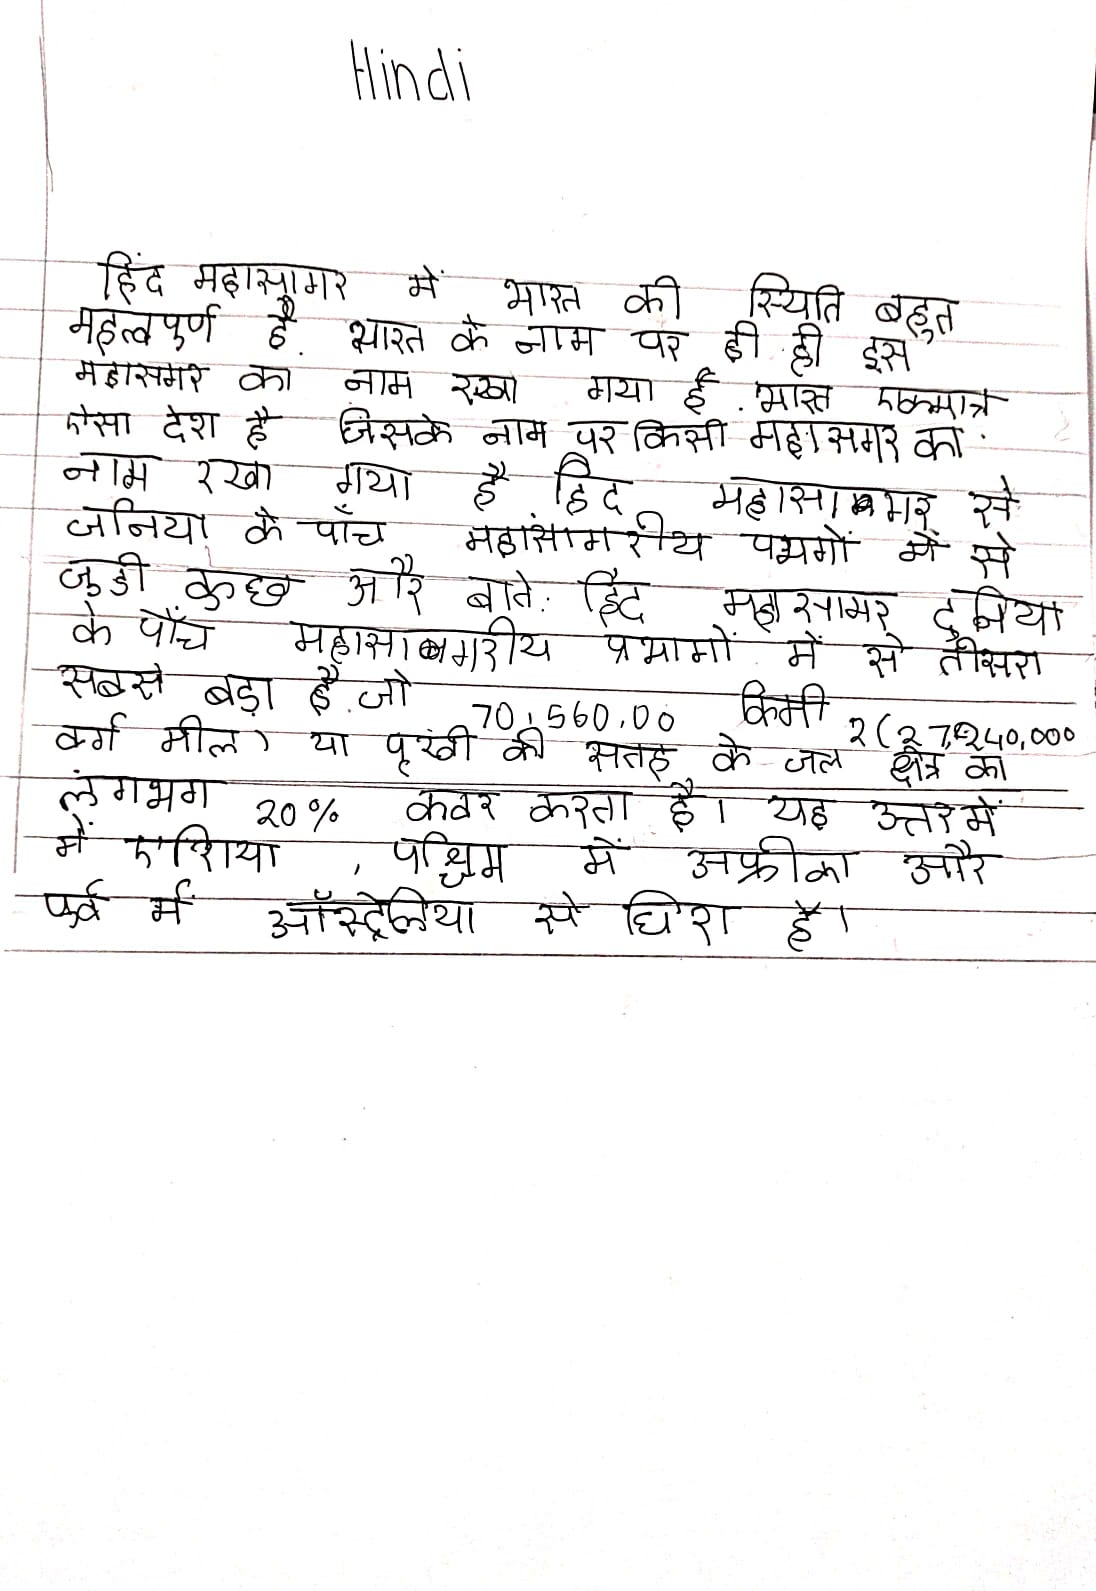 Hindi
हिंद महासागर में भारत की स्थिति बहुत
महत्वपुर्ण है. भारत के नाम पर ही ही इस
महासगर का नाम रखा गया है. भारत एकमात्र
ऐसा देश है जिसके नाम पर किसी महासगर का
नाम रखा गया है हिंद महासागर से
जनिया के पाँच महांसागरीय पभगों में से
जुडी कुछ और बाते: हिंद महासागर दुनिया
के पाँच महासागरीय प्रभागों में से तीसरा
सबसे बड़ा है. जो 70,560,00 किमी 2 (27,240,000
वर्ग मील) या पृथ्वी की सतह के जल क्षेत्र का
लगभग 20% कवर करता है। यह उत्तर में
में एशिया, पश्चिम में अफ्रीका और
पुर्व में ऑस्ट्रेलिया से घिरा है।